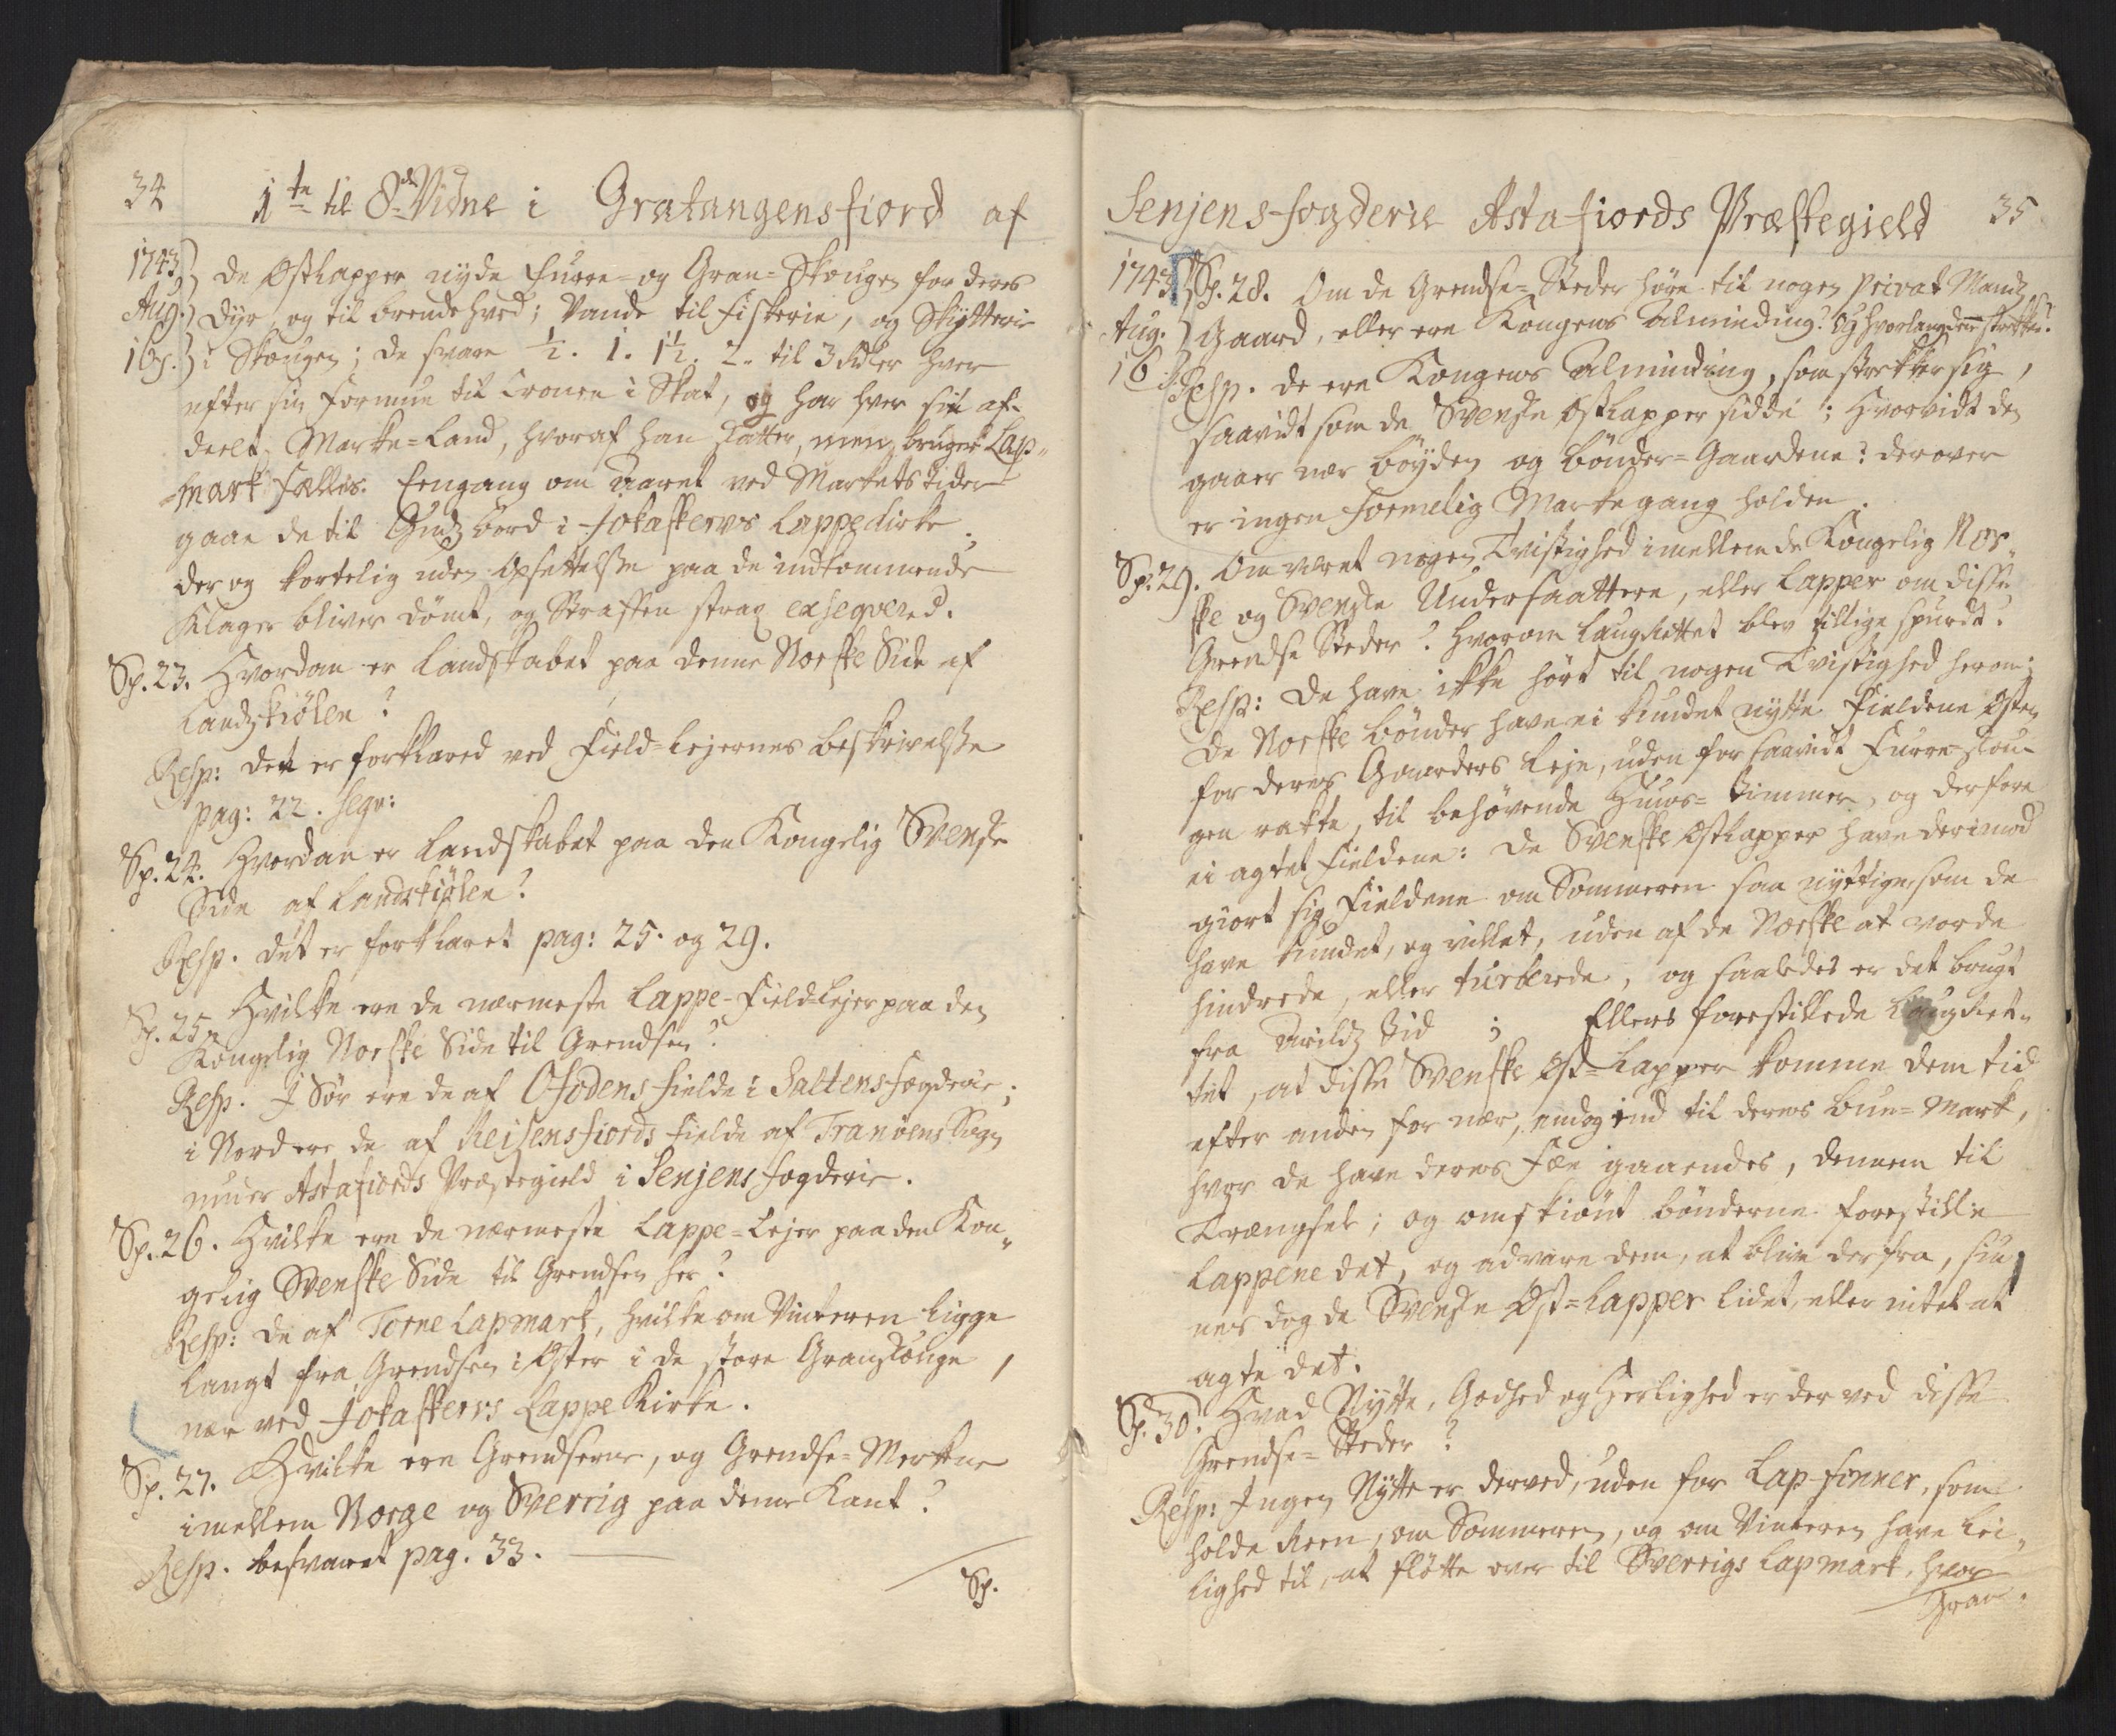 34
1te til 8de Vidne i Gratangensfiord af
1743 de Østlapper nyde Furre- og Gran-Skougen for deres
Aug. Dyr, og til brendehved; Vande til Fiskerie, og Skytterie
16. i Skougen; de svare ½. 1. 1½. 2. til 3 Rdler hver
efter sin Formue til Cronen i Skat, og har hver sit af-
deelt Marke-Land, hvoraf han skatter, men bruger Lap-
mark fælles. Eengang om Aaret ved Markets tider
gaae de til Gudz bord i Jokaskervs Lappe Kirke;
der og kortelig uden Opsettelse paa de indkommende
Klager bliver dømt, og Straffen strax exseqvered.
Sp. 23. Hvordan er Landskabet paa denne Norske Side af
Landzkiølen?
Resp: det er forklared ved Field-Lejernes beskrivelse
pag: 22. seqv:
Sp. 24. Hvordan er Landskabet paa den Kongelig Svenske
Side af Landzkiølen?
Resp. det er forklaret pag: 25. og 29.
Sp. 25. Hvilke ere de nærmeste Lappe-Field-Lejer paa den
Kongelig Norske Side til Grendsen?
Resp. I Sør ere de af Ofodens fielde i Saltens fogderie;
i Nord ere de af Reisensfiords fielde af Tranøens Sogn
under Astafiords Præstegield i Senjens fogderie.
Sp. 26. Hvilke ere de nærmeste Lappe-Lejer paa den Kon-
gelig Svenske Side til Grendsen her?
Resp: de af Torne Lapmark, hvilke om Vinteren ligge
langt fra Grendsen i Øster i de store Granskouge,
nær ved Jokaskervs Lappe Kirke.
Sp. 27. Hvilke ere Grendserne, og Grendse-Merkene
imellem Norge og Sverrig paa denne Kant?
Resp. besvaret pag. 33.
Sp.
Senjens-fogderie Astafiords Præstegield 35
1743 Sp. 28. Om de Grendse-Steder høre til nogen privat Mandz
Aug. Gaard, eller ere Kongens Alminding? Og hvorlangt den strekker sig?
16. Resp. de ere Kongens Alminding, som strekker sig,
saavidt som de Svenske Østlapper sidde; Hvorvidt den
gaaer nær bøyden og bønder-Gaardene: derover
er ingen formelig Markegang holden.
Sp. 29. Om været nogen Tvistighed imellem de Kongelig Nor-
ske og Svenske Undersaattere, eller Lapper om disse
Grendse Steder? hvorom Laugrettet blev tillige spurdt?
Resp: De have ikke hørt til nogen Tvistighed herom;
De Norske bønder have ei kundet nytte fieldene Østen
for deres Gaarders Leje, uden for saavidt Furre-skou-
gen rakte, til behøvende Huus-timmer, og derfore
ei agtet fieldene: De Svenske Østlapper have derimod
giort sig fieldene om Sommeren saa nyttige, som de
have kundet, og villet, uden af de Norske at vorde
hindrede, eller turberede, og saaledes er det brugt
fra Arildz tid; Ellers forestillede Laugret-
tet, at disse Svenske Øst-Lapper komme dem tid
efter anden for nær, endog ind til deres bue-Mark,
hvor de have deres Fæe gaaendes, dennem til
Trængsel; og omskiønt bønderne forestille
Lappene det, og advare dem, at blive derfra, siu-
nes dog de Svenske Øst-Lapper lidet, eller intet at
agte det.
Sp. 30. Hvad Nytte, Godhed og Herlighed er der ved disse
Grendse-Steder?
Resp: Ingen Nytte er derved, uden for Lap-finner, som
holde Reen, om Sommeren, og om Vinteren have Lei-
lighed til, at fløtte over til Sverrigs Lapmark, hvor
Gran-